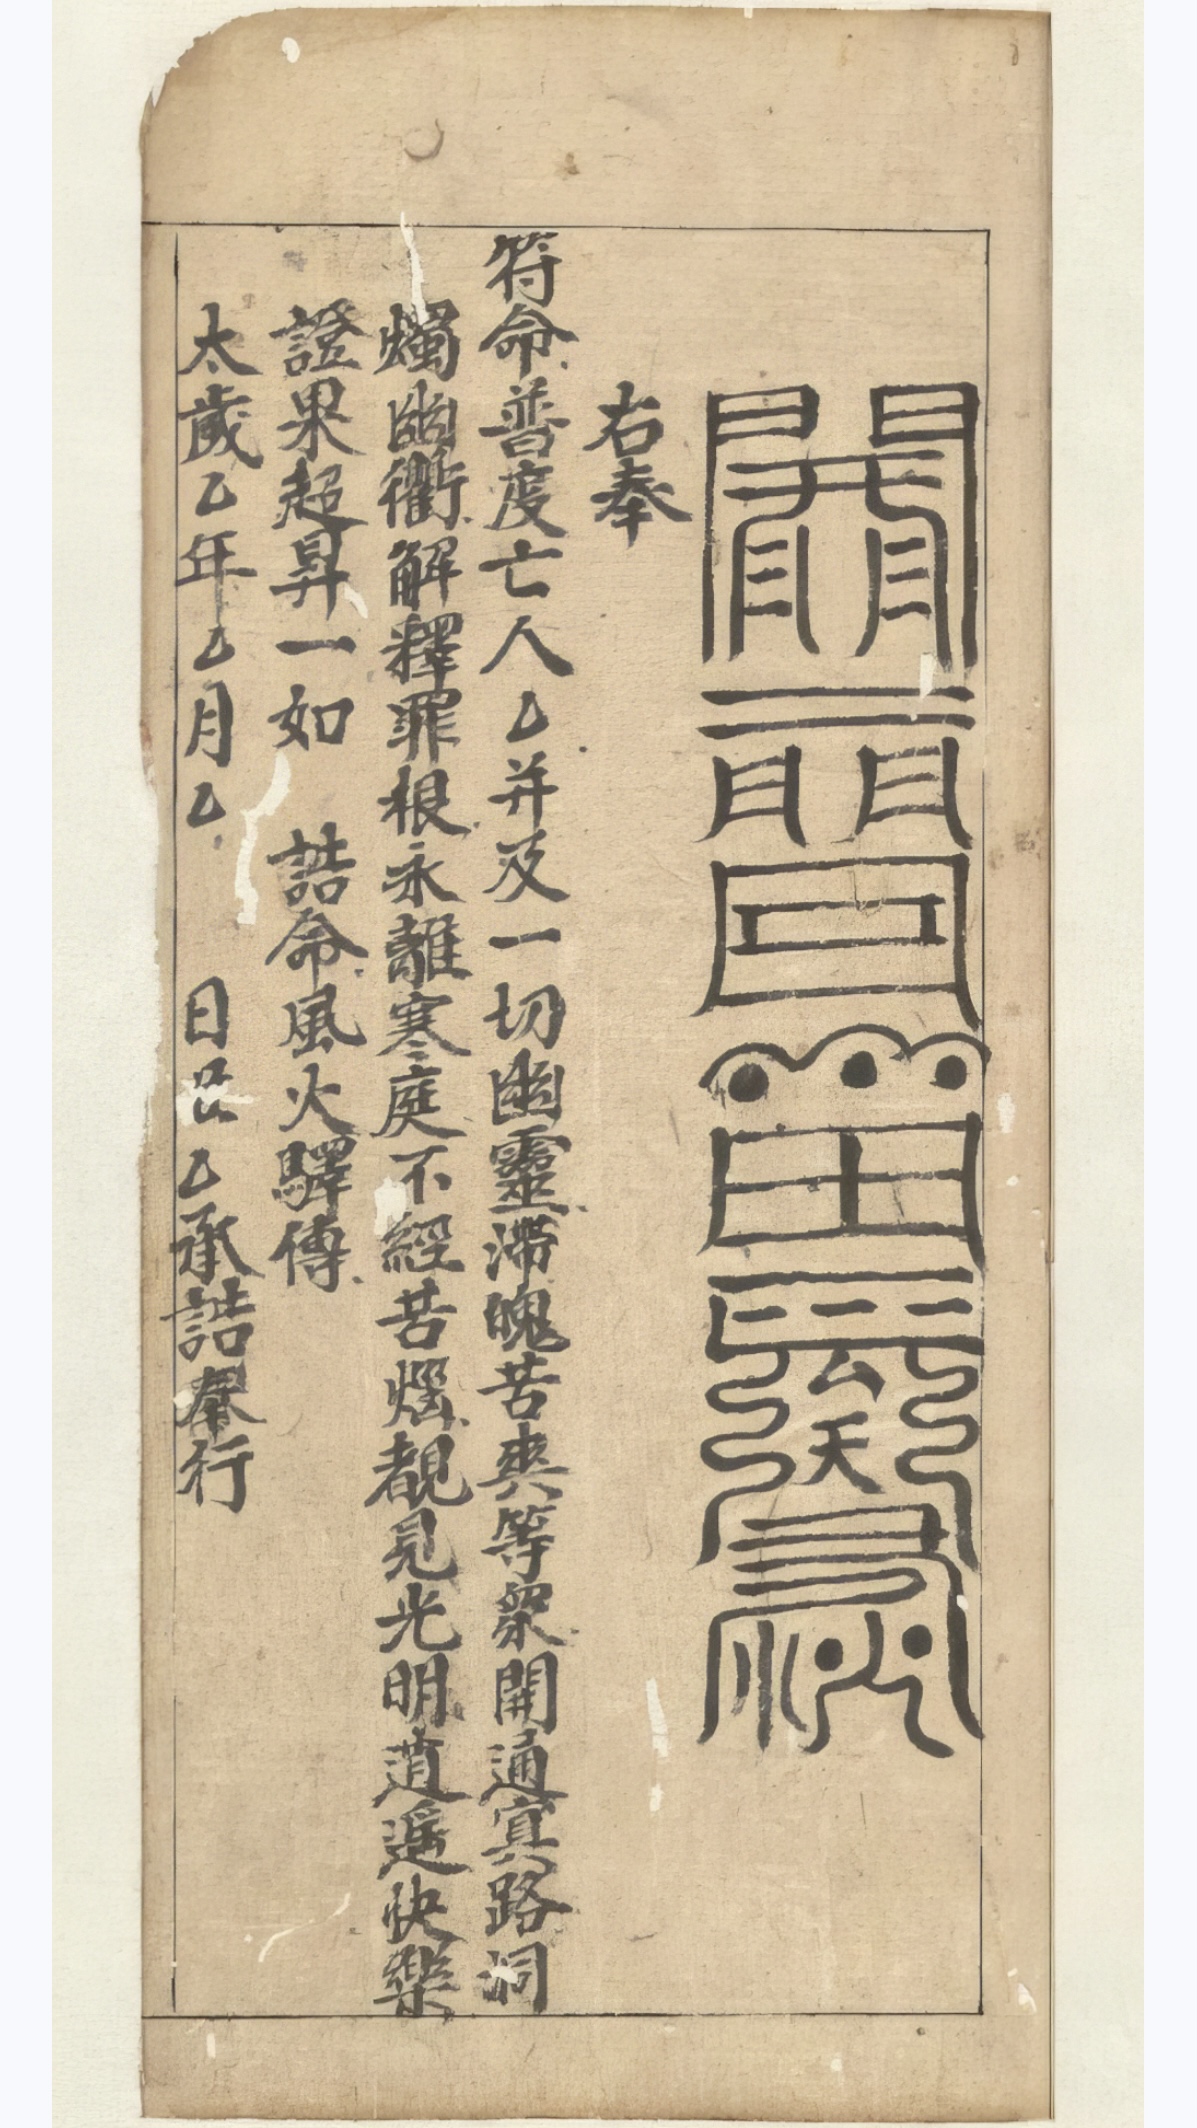 右奉
符命普度亡人乙并及一切幽靈滯魄苦爽等衆開通冥路洞
燭幽衢解釋罪根永離寒庭不經苦熖覩見光明逍遥快樂
證果超昇一如 誥命風火驛傳
太歲乙年乙月乙 日吿乙承誥奉行